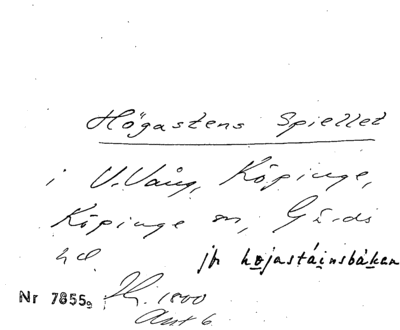 Högastens Spiellet
i V. Vång, Köpinge,
Köpinge sn, Gärds
hd jfr højastáinsbákan
Nr 7855g 1800
Akt 6